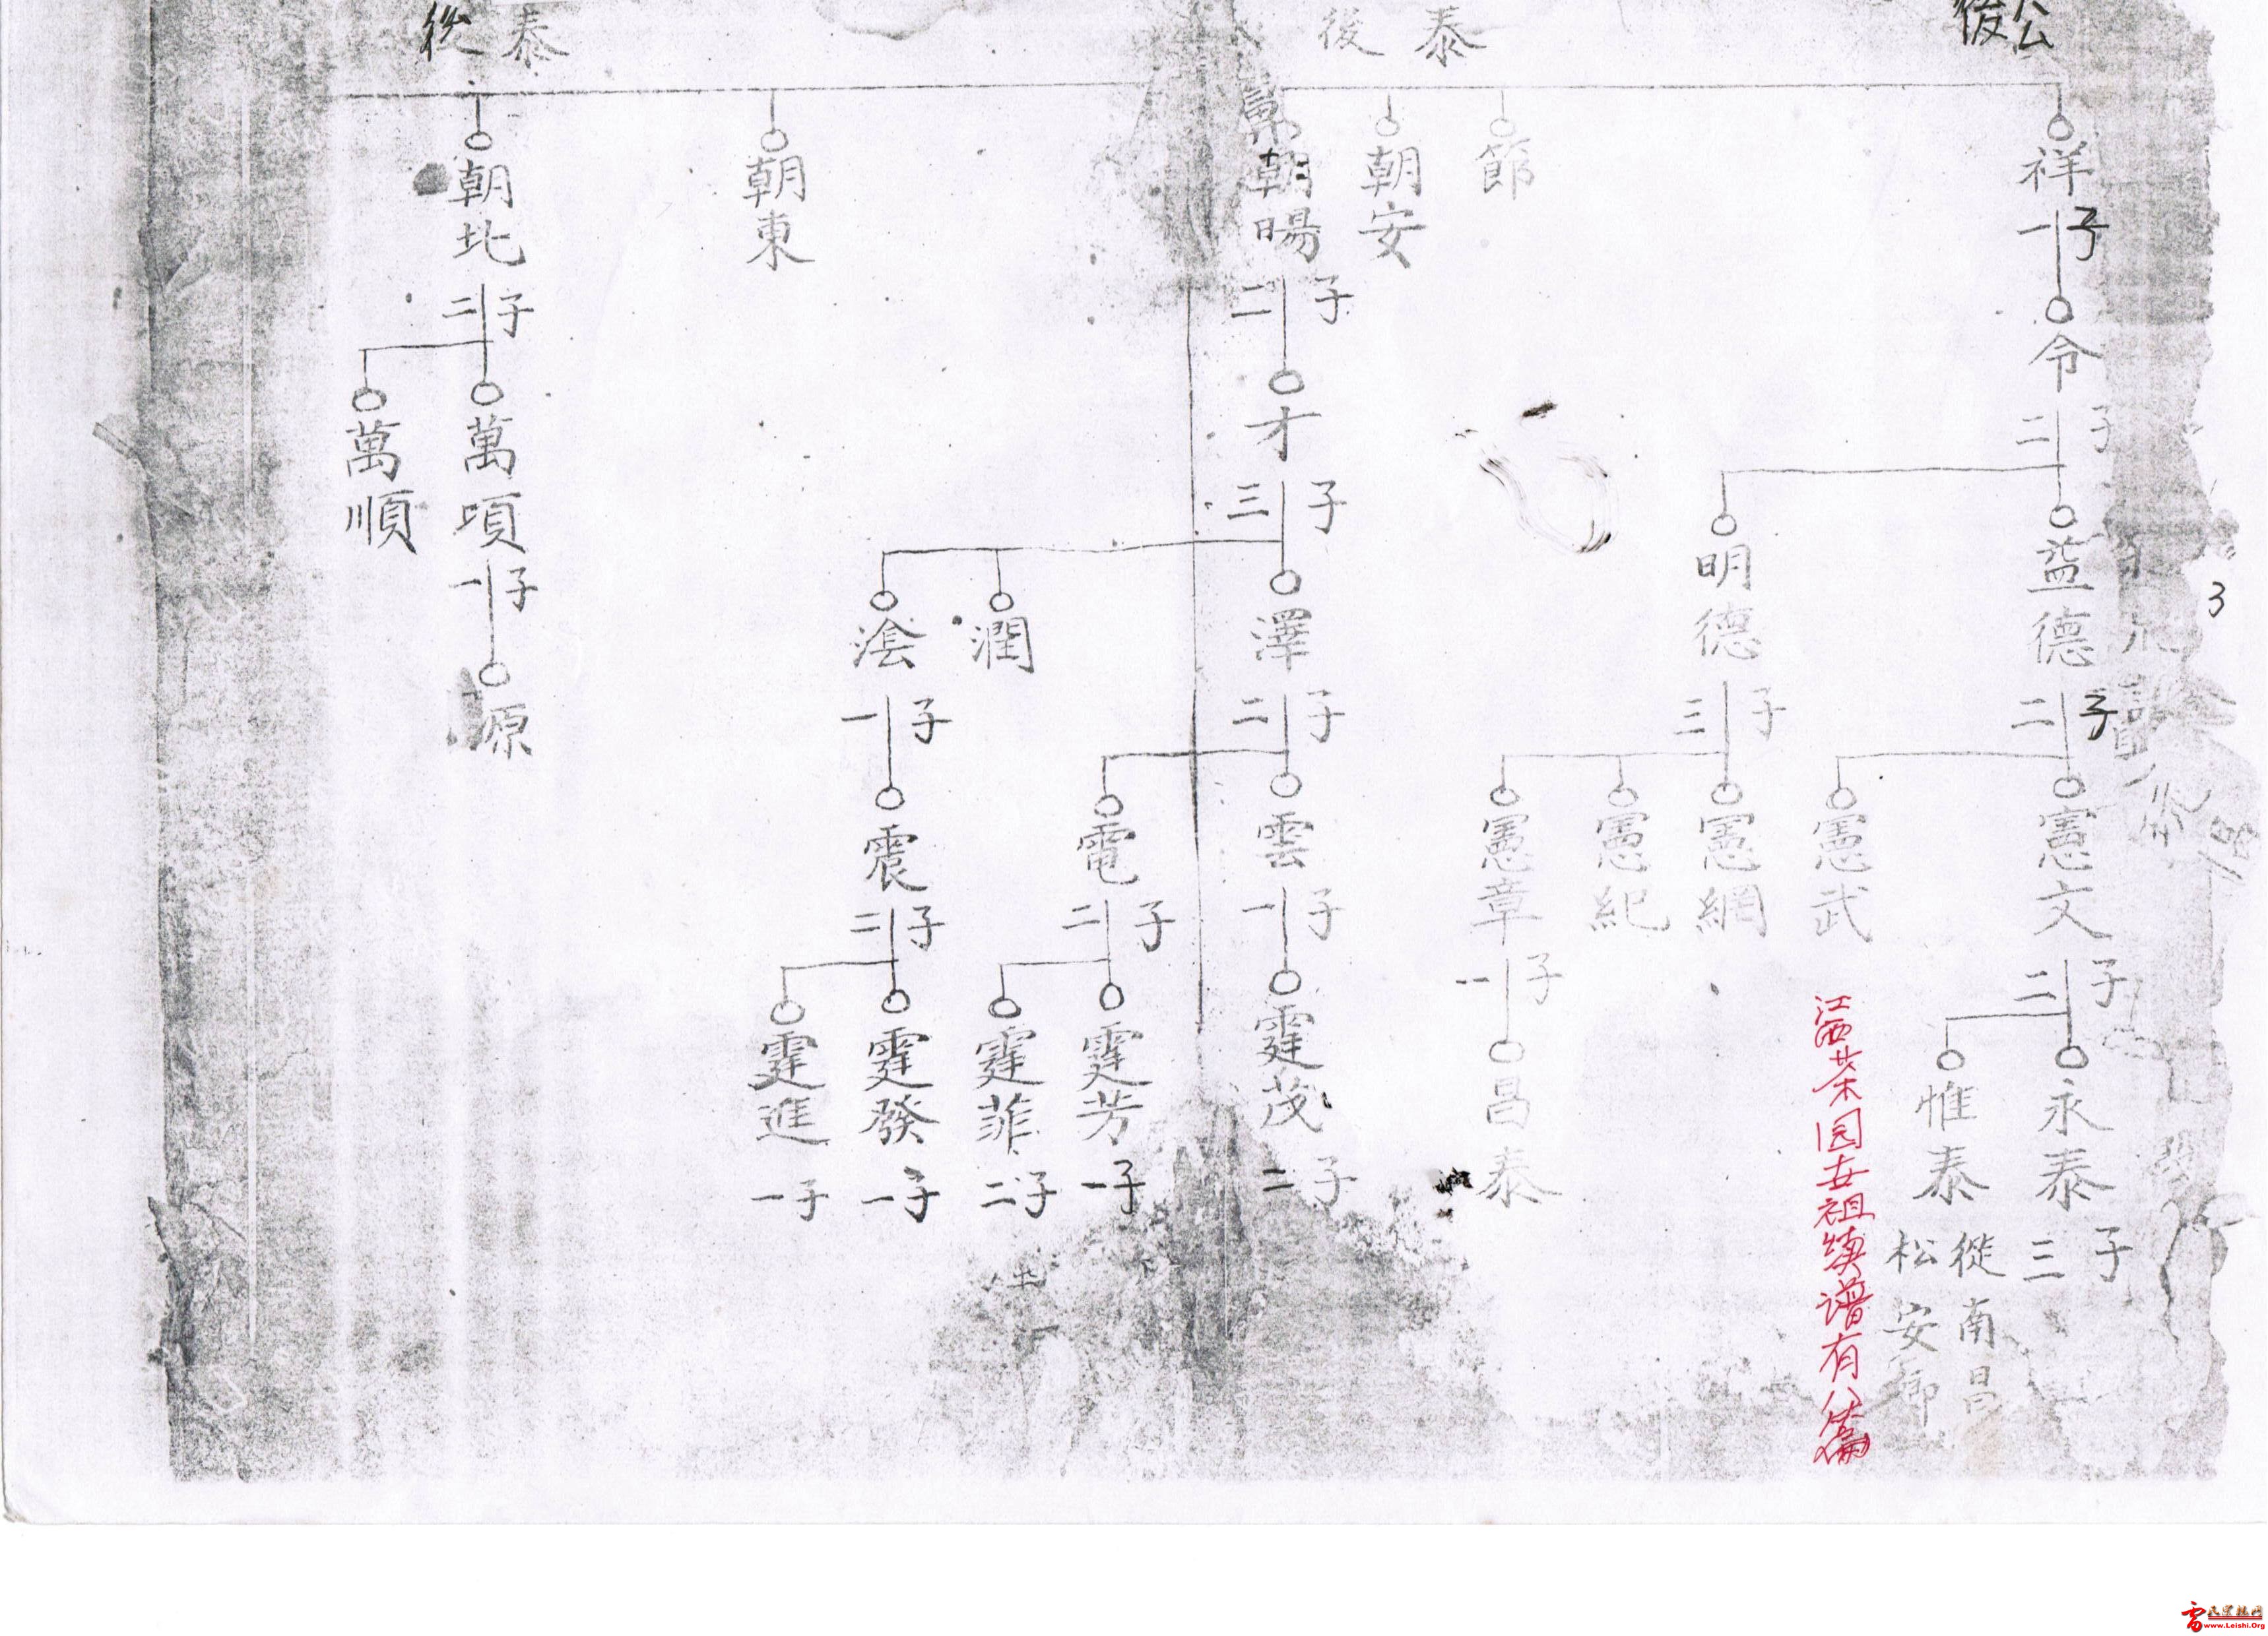 公
後
祥
一子
令
二子
益德
二子
憲文
二子
永泰
三子
惟泰
從南昌
松安鄉
憲武
明德
三子
憲綱
憲紀
憲章
一子
昌泰
江西茶园
泰
後
節
朝安
朝暘
二子
才
三子
澤
二子
雲
一子
霆茂
二子
電
二子
霆芳
一子
霆菲
二子
潤
淦
一子
震
二子
霆發
一子
霆進
一子
泰
後
朝東
朝北
二子
萬項
一子
源
萬順
3
www.Leishi.Org